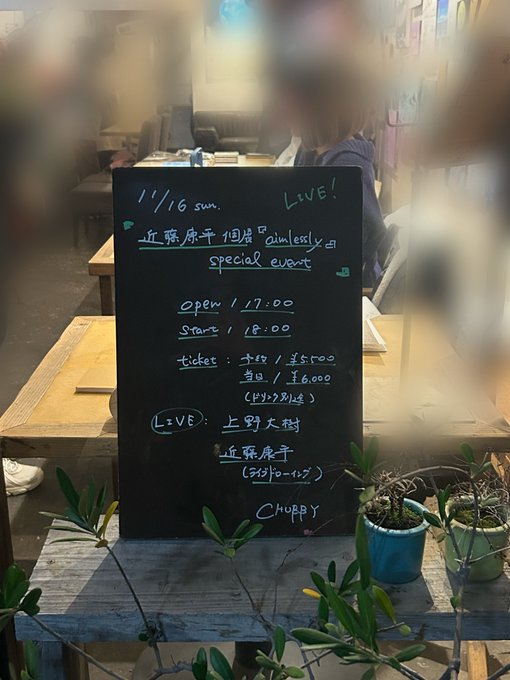 11/16 sun.
LIVE!
近藤康平 個展『aimlessly』
special event
open / 17:00
start / 18:00
ticket : 予約 / ¥5.500
当日 / ¥6.000
(ドリンク別途)
LIVE : 上野大樹
近藤康平
(ライブドローイング)
CHUBBY